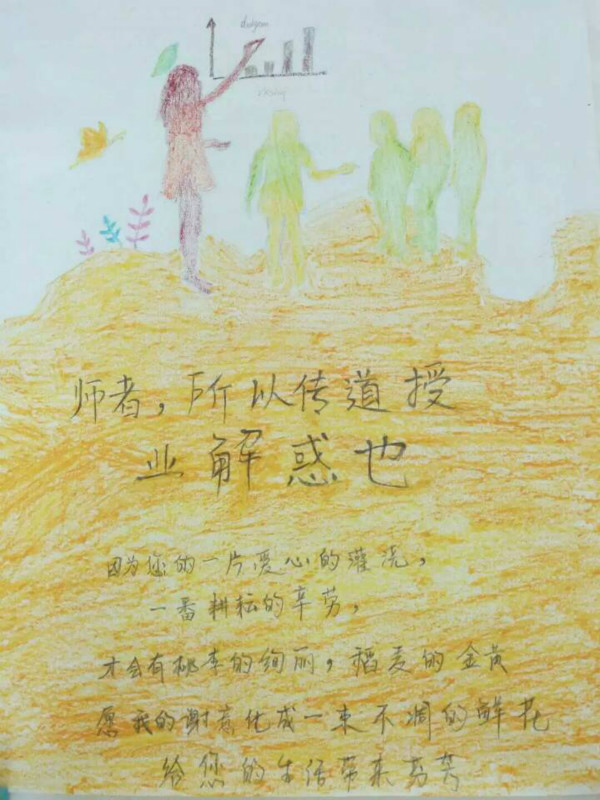 师者，所以传道授
业解惑也
因为您的一片爱心的灌浇，
一番耕耘的辛劳，
才会有桃李的绚丽，稻麦的金黄
愿我的谢意化成一束不凋的鲜花
给您的生活带来芬芳